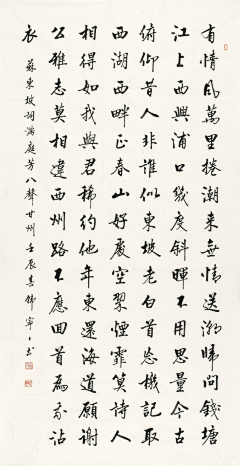 有情风萬里捲潮来無情送潮歸问錢塘
江上西興浦口幾度斜暉不用思量今古
俯仰昔人非誰似東坡老白首忘機記取
西湖西畔正春山好處空翠煙霏算诗人
相得如我與君稀约他年東還海道願谢
公雅志莫相違西州路不應回首為我沾
衣
蘇東坡词满庭芳八聲甘州壬辰春锦寧书